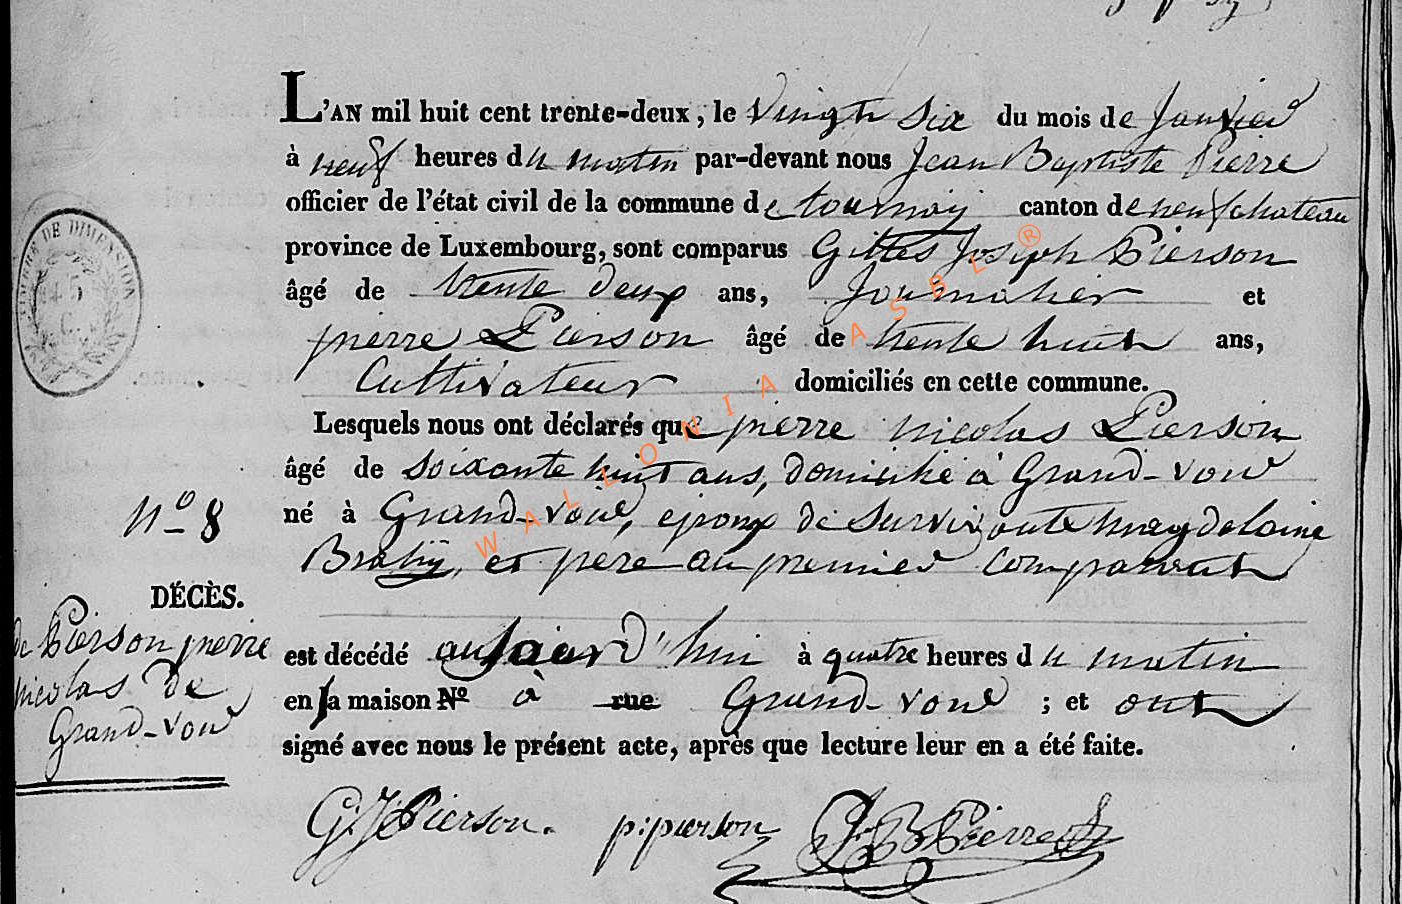 L'AN mil huit cent trente-deux, le vingt six du mois de Janvier
à neuf heures du matin par-devant nous Jean Baptiste Pierre
officier de l'état civil de la commune de tournay canton de neufchateau
province de Luxembourg, sont comparus Gilles Joseph Pierson
âgé de trente deux ans, Journalier et
pierre Pierson âgé de trente huit ans,
Cultivateur domiciliés en cette commune.
Lesquels nous ont déclarés que pierre nicolas Pierson
âgé de soixante huit ans, domicilié à Grand-voir
né à Grand-voir, epoux de Survivante magdelaine
et pere au premier Comparant
N° 8
DÉCÈS.
de Pierson pierre
nicolas de
Grand-voir
est décédé aujourd'hui à quatre heures du matin
en sa maison N° à rue Grand-voir ; et ont
signé avec nous le présent acte, après que lecture leur en a été faite.
G:J:Pierson. p:pierson J:B Pierre
TIMBRE DE DIMENSION
45 C.
WALLONIA ASBL ®